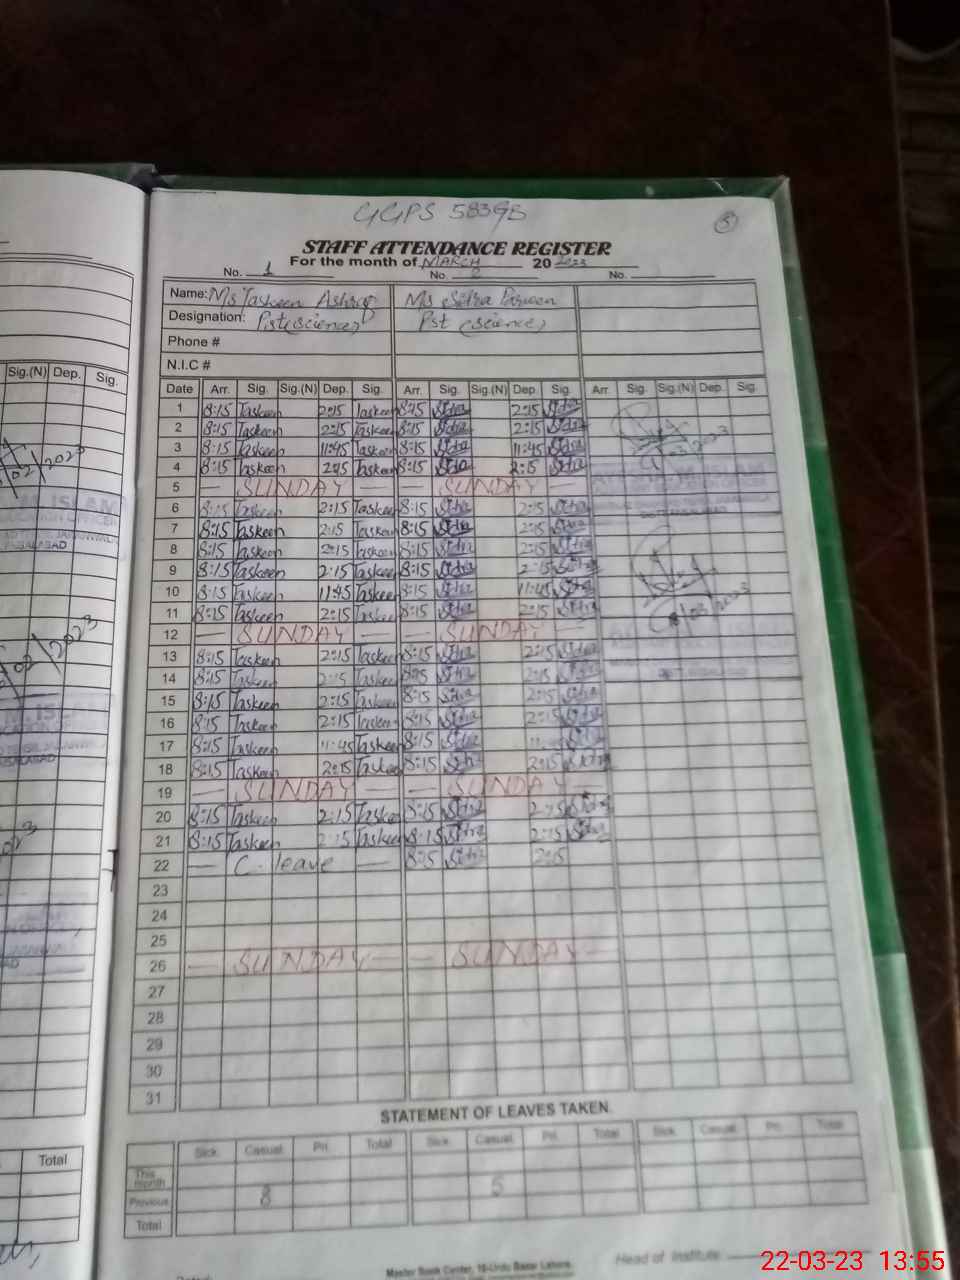 GGPS 583GB
5
STAFF ATTENDANCE REGISTER
For the month of MARCH 20 2023
No. 1 No. 2 No.
Name: Ms Taskeen Ashraf Ms Sidra Parveen
Designation: Pst (science) Pst (science)
Phone #
N.I.C #
Sig.(N) Dep. Sig.
Date Arr. Sig. Sig.(N) Dep. Sig. Arr. Sig. Sig.(N) Dep. Sig. Arr. Sig. Sig.(N) Dep. Sig.
1 8:15 Taskeen 2:15 Taskeen 8:15 Sidra 2:15 Sidra
2 8:15 Taskeen 2:15 Taskeen 8:15 Sidra 2:15 Sidra
3 8:15 Taskeen 11:45 Taskeen 8:15 Sidra 11:45 Sidra
4 8:15 Taskeen 2:15 Taskeen 8:15 Sidra 2:15 Sidra
5 — SUNDAY — — SUNDAY —
6 8:15 Taskeen 2:15 Taskeen 8:15 Sidra 2:15 Sidra
7 8:15 Taskeen 2:15 Taskeen 8:15 Sidra 2:15 Sidra
8 8:15 Taskeen 2:15 Taskeen 8:15 Sidra 2:15 Sidra
9 8:15 Taskeen 2:15 Taskeen 8:15 Sidra 2:15 Sidra
10 8:15 Taskeen 11:45 Taskeen 8:15 Sidra 11:45 Sidra
11 8:15 Taskeen 2:15 Taskeen 8:15 Sidra 2:15 Sidra
12 — SUNDAY — — SUNDAY —
13 8:15 Taskeen 2:15 Taskeen 8:15 Sidra 2:15 Sidra
14 8:15 Taskeen 2:15 Taskeen 8:15 Sidra 2:15 Sidra
15 8:15 Taskeen 2:15 Taskeen 8:15 Sidra 2:15 Sidra
16 8:15 Taskeen 2:15 Taskeen 8:15 Sidra 2:15 Sidra
17 8:15 Taskeen 11:45 Taskeen 8:15 Sidra Sidra
18 8:15 Taskeen 2:15 Taskeen 8:15 Sidra 2:15 Sidra
19 — SUNDAY — — SUNDAY —
20 8:15 Taskeen 2:15 Taskeen 8:15 Sidra 2:15 Sidra
21 8:15 Taskeen 2:15 Taskeen 8:15 Sidra 2:15 Sidra
22 — C. leave — 8:15 Sidra 2:15
23
24
25
26 — SUNDAY — — SUNDAY —
27
28
29
30
31
STATEMENT OF LEAVES TAKEN.
Sick. Casual Pri. Total Sick. Casual Pri. Total Sick. Casual Pri. Total
This month
Previous 8 5
Total
Total
Head of Institute
Master Book Center, 10-Urdu Bazar Lahore.
22-03-23 13:55